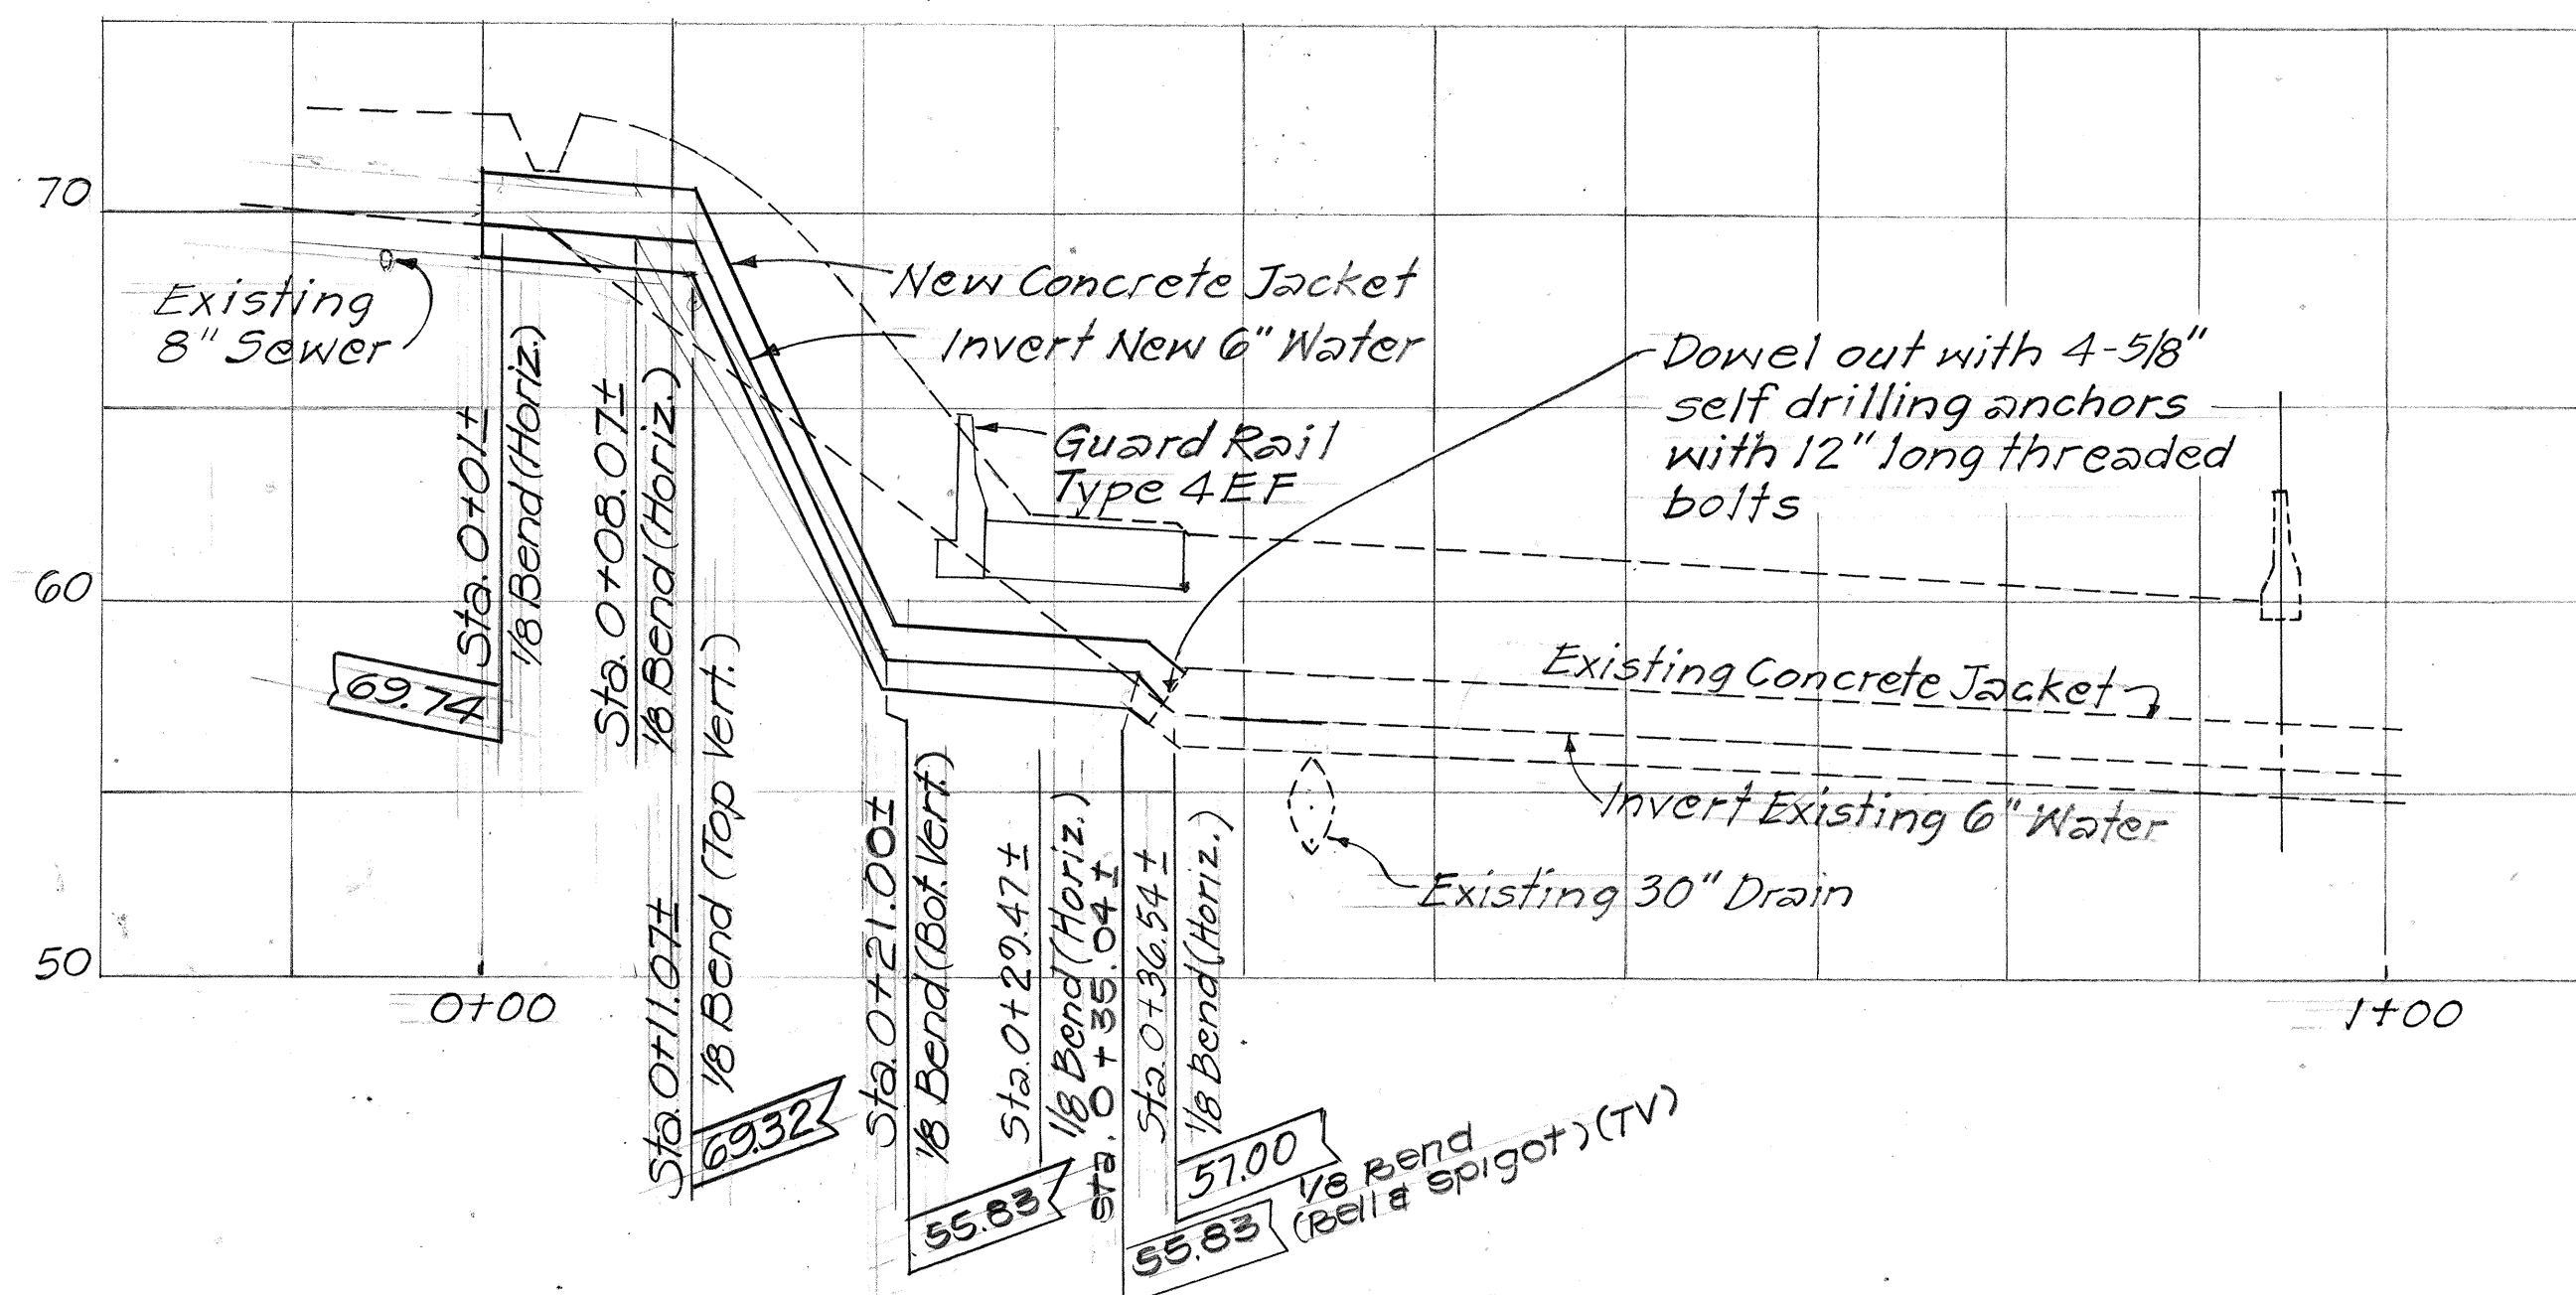 70
60
50
0+00
1+00
Existing
8" Sewer
New Concrete Jacket
Invert New 6" Water
Guard Rail
Type 4EF
Dowel out with 4-5/8"
self drilling anchors
with 12" long threaded
bolts
Existing Concrete Jacket
Invert Existing 6" Water
Existing 30" Drain
Sta. 0+01±
1/8 Bend (Horiz.)
69.74
Sta. 0+08.07±
1/8 Bend (Horiz.)
Sta. 0+11.07±
1/8 Bend (Top Vert.)
69.32
Sta. 0+21.00±
1/8 Bend (Bot. Vert.)
55.83
Sta. 0+29.47±
1/8 Bend (Horiz.)
Sta. 0+35.04±
55.83
1/8 Bend
(Bell & Spigot) (TV)
Sta. 0+36.54±
1/8 Bend (Horiz.)
57.00